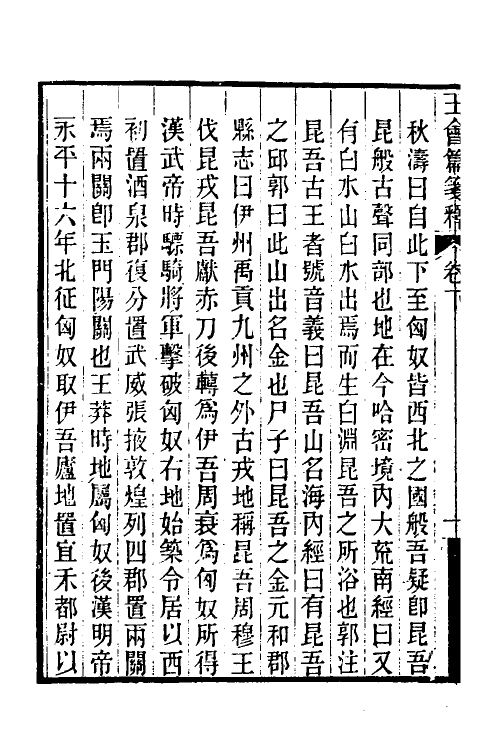 王會篇箋釋 卷下
秋濤曰自此下至匈奴皆西北之國般吾疑卽昆吾
昆般古聲同部也地在今哈密境內大荒南經曰又
有白水山白水出焉而生白淵昆吾之所浴也郭注
昆吾古王者號音義曰昆吾山名海內經曰有昆吾
之邱郭曰此山出名金也尸子曰昆吾之金元和郡
縣志曰伊州禹貢九州之外古戎地稱昆吾周穆王
伐昆戎昆吾獻赤刀後轉爲伊吾周衰爲匈奴所得
漢武帝時驃騎將軍擊破匈奴右地始築令居以西
初置酒泉郡復分置武威張掖敦煌列四郡置兩關
焉兩關卽玉門陽關也王莽時地屬匈奴後漢明帝
永平十六年北征匈奴取伊吾廬地置宜禾都尉以